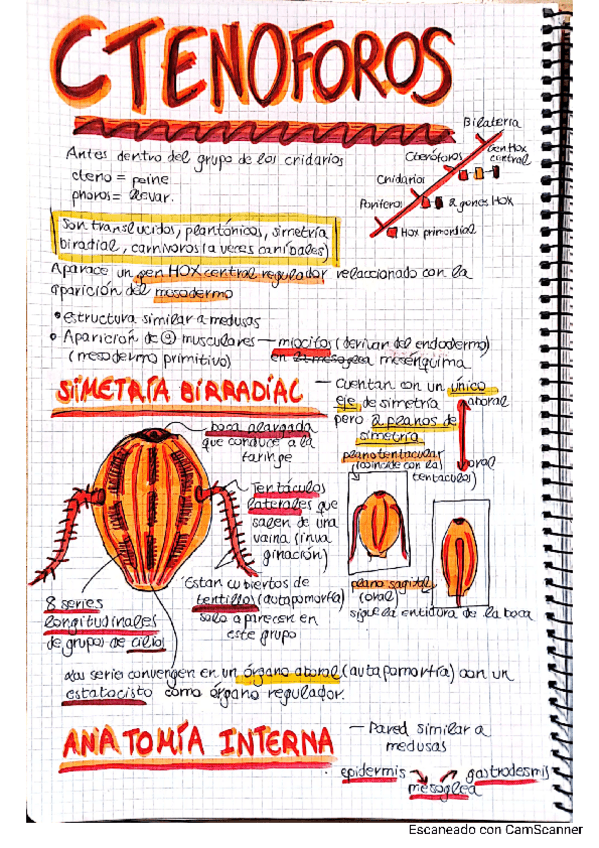 CTENOFOROS
Antes dentro del grupo de los cnidarios
cteno = peine
phoros = llevar.
Bilateria
Gen Hox
central
Ctenóforos
Cnidarios
Poríferos
2 genes HOX
Hox primordial
Son translucidos, plantónicos, simetría
biradial, carnívoros (a veces caníbales)
Aparace un gen HOX central regulador relaccionado con la
aparición del mesodermo
• estructura similar a medusas
• Aparición de musculares — miocitos (derivan del endodermo)
(mesodermo primitivo) en mesénquima
SIMETRÍA BIRRADIAL
— Cuentan con un único
eje de simetría
pero 2 planos de
simetría
aboral
oral
plano tentacular
(coincide con los
tentaculos)
boca alargada
que conduce a la
faringe
Tentáculos
laterales que
salen de una
vaina (inva
ginación)
Estan cubiertos de
tentillos (autapomorfía)
solo aparecen en
este grupo
plano sagital
(oral)
sigue la entidura de la boca
8 series
longitudinales
de grupos de cilios
las series convergen en un órgano aboral (autapomorfía) con un
estatocisto como órgano regulador.
ANATOMÍA INTERNA
— Pared similar a
medusas
epidermis gastrodesmis
mesoglea
Escaneado con CamScanner